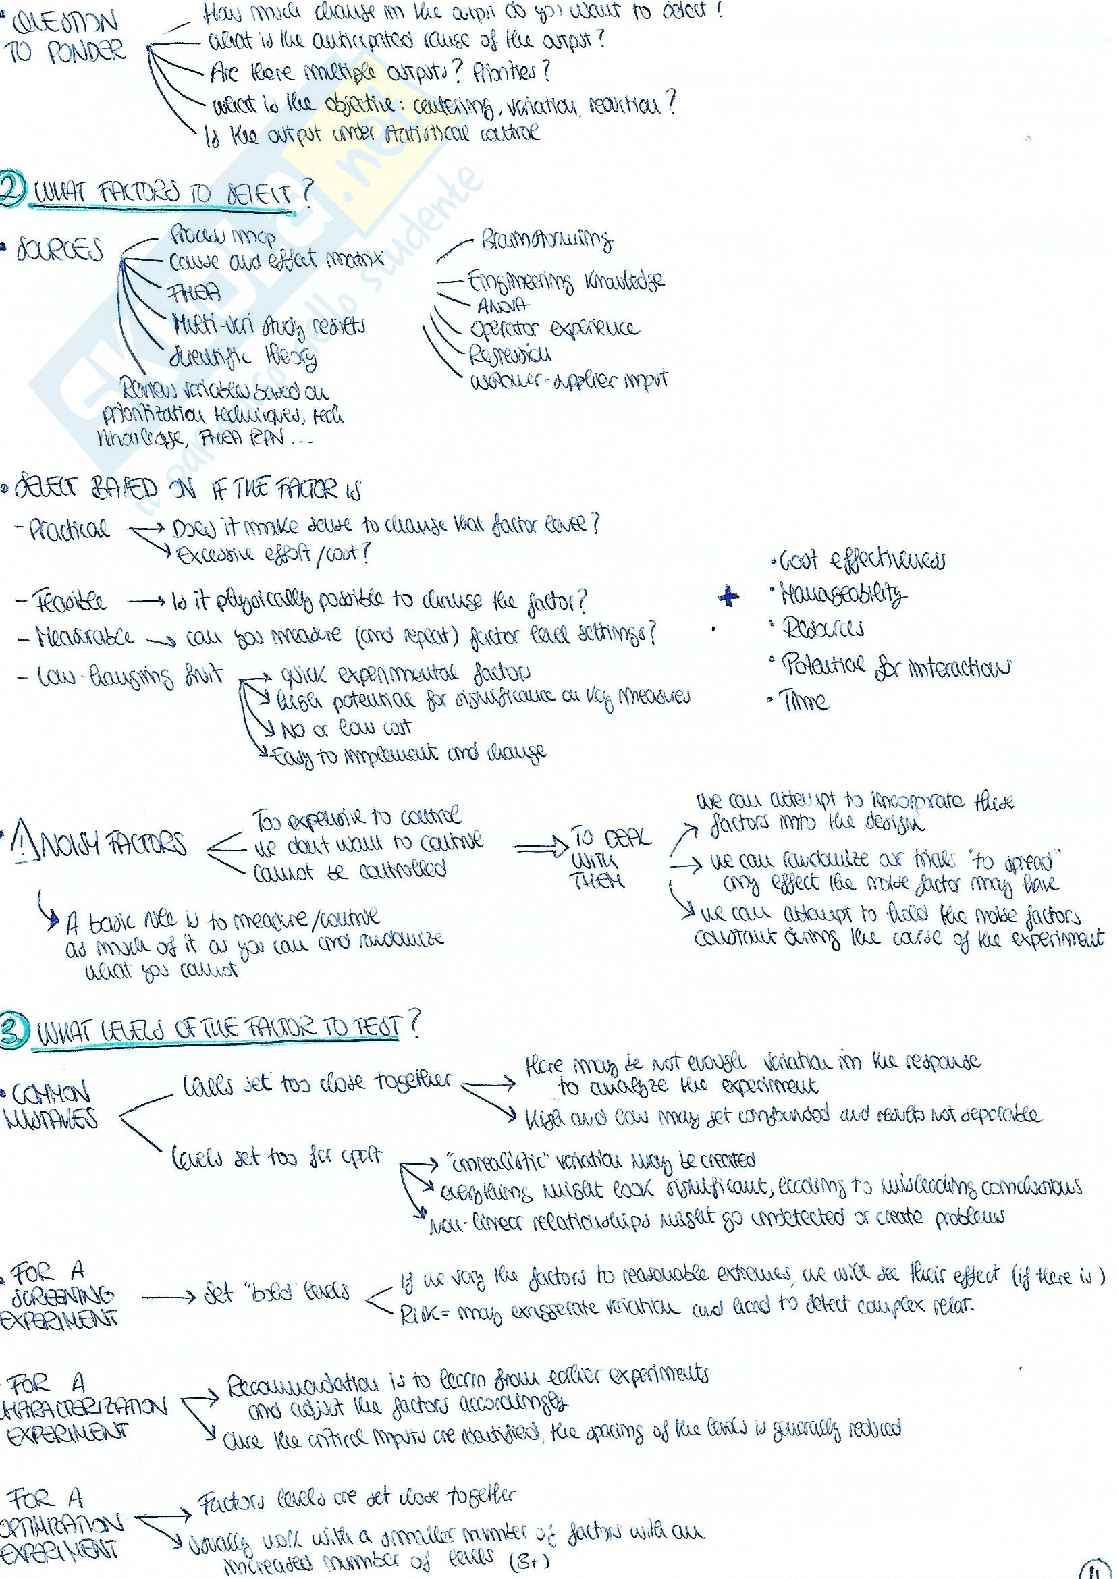 • QUESTION TO PONDER
How much change in the output do you want to detect?
What is the anticipated cause of the output?
Are there multiple outputs? Priorities?
What is the objective: centering, variation, reduction?
Is the output under statistical control
2 WHAT FACTORS TO SELECT?
• SOURCES
Process map
Cause and effect matrix
FMEA
Multi-vari study results
Scientific theory
Reviews variables based on
prioritization techniques, tech
knowledge, FMEA RPN ...
Brainstorming
Engineering knowledge
ANOVA
Operator experience
Regression
customer-supplier input
• SELECT BASED ON IF THE FACTOR IS
- Practical → Does it make sense to change that factor level?
Excessive effort/cost?
- Feasible → Is it physically possible to change the factor?
- Measurable → can you measure (and repeat) factor level settings?
- Low-hanging fruit → quick experimental factors
high potential for significance on key measures
No or low cost
Easy to implement and change
+
• Cost effectiveness
• Manageability
• Resources
• Potential for interaction
• Time
• ⚠ NOISY FACTORS
Too expensive to control
we don't want to control
cannot be controlled
⇒ TO DEAL
WITH
THEM
we can attempt to incorporate these
factors into the design
we can randomize our trials "to spread"
any effect the noise factor may have
we can attempt to hold the noise factors
constant during the course of the experiment
A basic rule is to measure/control
as much of it as you can and randomize
what you cannot
3 WHAT LEVELS OF THE FACTOR TO TEST?
• COMMON
MISTAKES
Levels set too close together
there may be not enough variation in the response
to analyze the experiment
High and low may get confounded and results not separable
Levels set too far apart
"unrealistic" variation may be created
everything might look significant, leading to misleading conclusions
Non-linear relationships might go undetected or create problems
• FOR A
SCREENING
EXPERIMENT
→ Set "bold" levels
If we vary the factors to reasonable extremes, we will see their effect (if there is)
Risk = may exaggerate variation and hard to detect complex relat.
FOR A
CHARACTERIZATION
EXPERIMENT
Recommendation is to learn from earlier experiments
and adjust the factors accordingly
Once the critical inputs are identified, the spacing of the levels is generally reduced
FOR A
OPTIMIZATION
EXPERIMENT
Factors levels are set close together
Usually work with a smaller number of factors with an
increased number of levels (3+)
SKUOLA.net
il paradiso dello studente